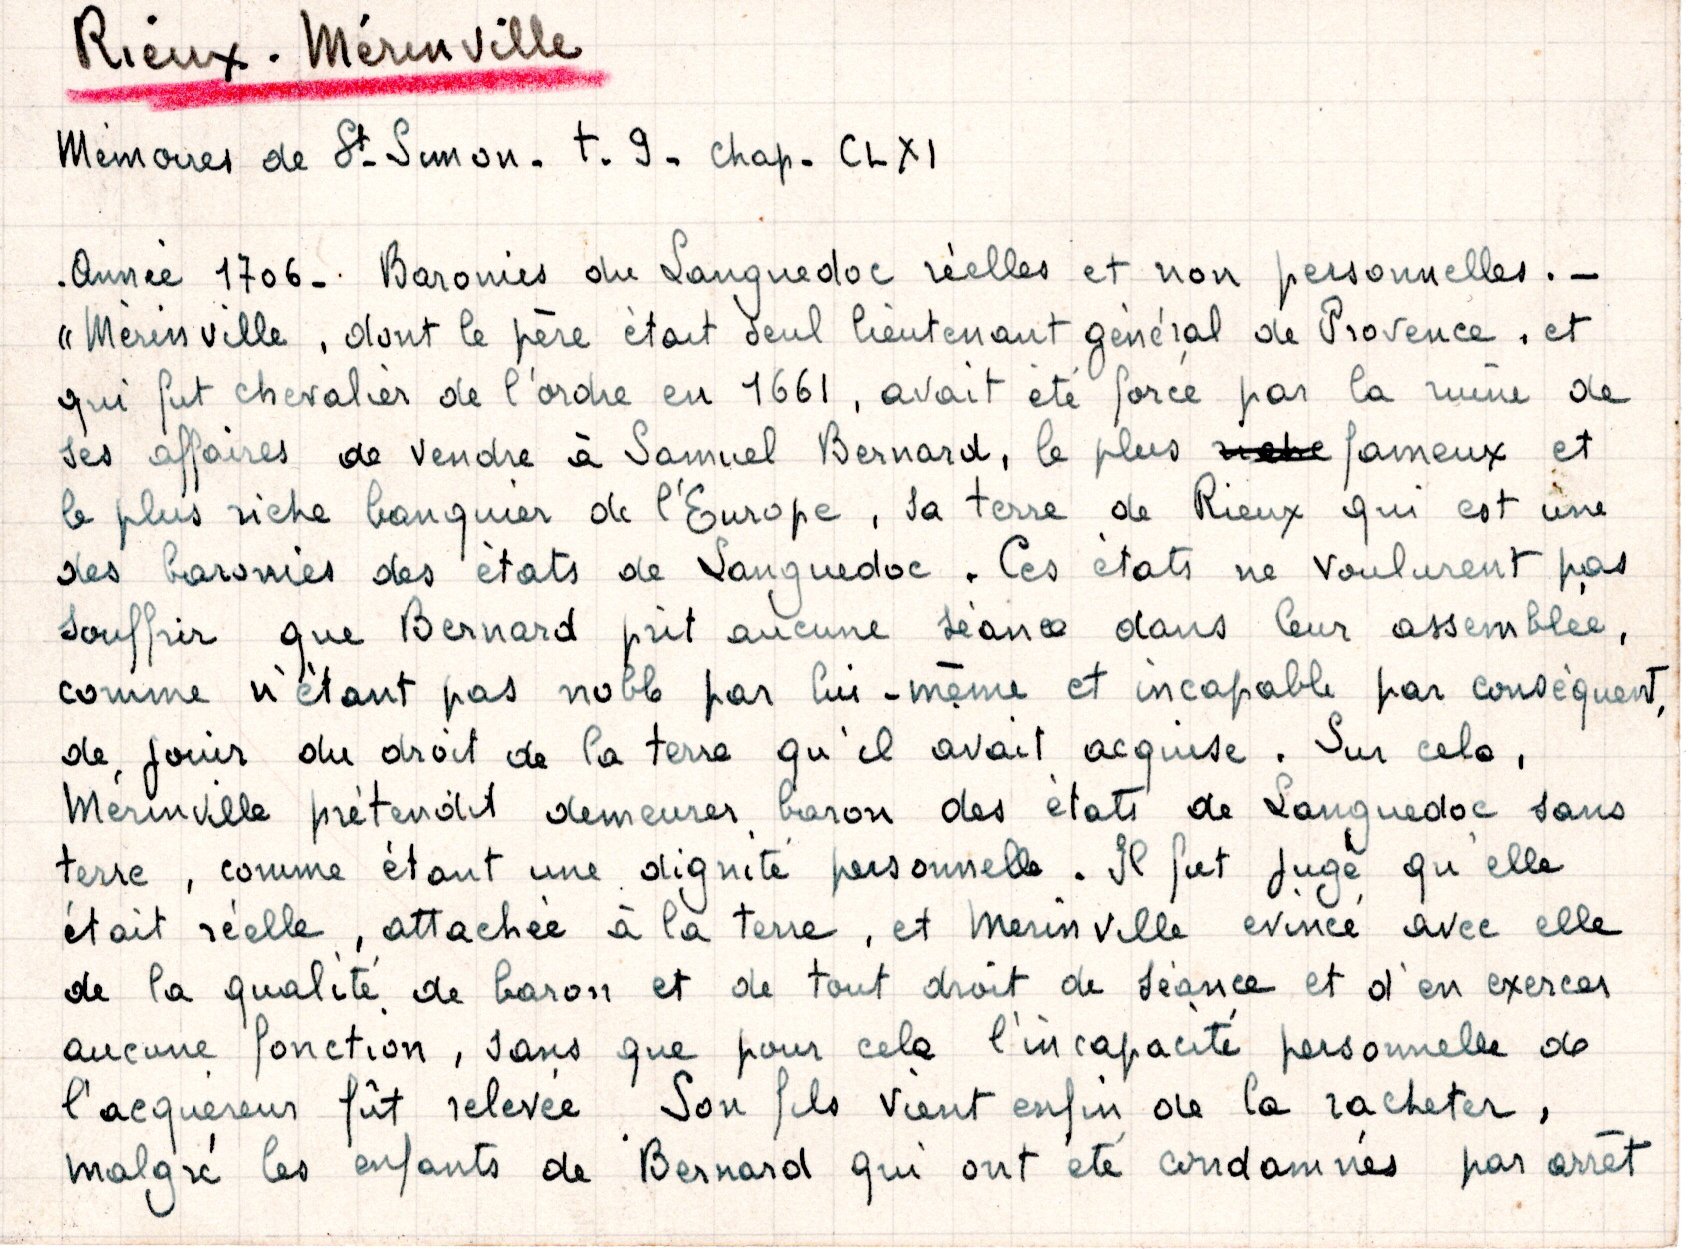 Rieux. Mérinville
Mémoires de St-Simon. t. 9. chap. CLXI
.Année 1706-. Baronies du Languedoc réelles et non personnelles. –
"Mérinville, dont le père était seul lieutenant général de Provence, et
qui fut chevalier de l'ordre en 1661, avait été forcé par la ruine de
ses affaires de vendre à Samuel Bernard, le plus ~~riche~~ fameux et
le plus riche banquier de l'Europe, sa terre de Rieux qui est une
des baronies des états de Languedoc. Ces états ne voulurent pas
souffrir que Bernard prit aucune séance dans leur assemblée,
comme n'étant pas noble par lui-même et incapable par conséquent,
de jouir du droit de la terre qu'il avait acquise. Sur cela,
Mérinville prétendit demeurer baron des états de Languedoc sans
terre, comme étant une dignité personnelle. Il fut jugé qu'elle
était réelle, attachée à la terre, et Merinville evincé avec elle
de la qualité de baron et de tout droit de séance et d'en exercer
aucune fonction, sans que pour cela l'incapacité personnelle de
l'acquéreur fût relevée. Son fils vient enfin de la racheter,
malgré les enfants de Bernard qui ont été condamnés par arrêt